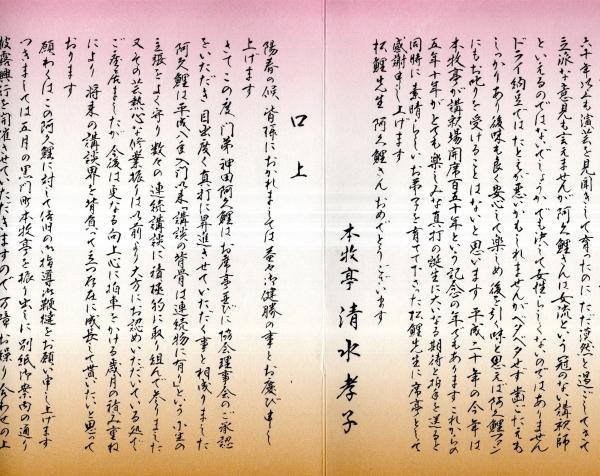 六十年以上も演芸を見聞きして育ったのに ただ漠然と過ごしてきて
立派な意見も言えませんが阿久鯉さんは女流という冠のない講釈師
といえるのではないでしょうか でも決して女性らしくないのではありません
ドライ納豆ではたとえが悪いかもしれませんがベタベタせず歯ごたえも
しっかりあり後味も良く安心して楽しめ 後を引く 時と思えば阿久鯉ファン
にもお叱りを受けることはないと思います 平成二十年の今年は
本牧亭が講釈場開席百五十年という記念の年でもあります これからの
五年十年がとても楽しみな真打の誕生に大いなる期待と拍手を送ると
同時に素晴らしいお弟子を育ててくださった松鯉先生に席亭として
感謝申し上げます
松鯉先生 阿久鯉さん おめでとうございます
本牧亭 清水孝子
口上
陽春の候、皆様におかれましては益々御健勝の事とお慶び申し
上げます
さて この度 門弟 神田阿久鯉はお席亭並びに協会理事会のご承認
をいただき 目出度く真打に昇進させていただく事と相成りました
阿久鯉は平成八年入門以来「講談の背骨は連続物に有り」という小生の
主張をよく守り 数々の連続講談に積極的に取り組んで参りました
又その芸熱心な修業振りは以前より大方にお認めいただいている処で
ございましたが 今後は更なる向上心に拍車をかける歳月の積み重ね
により 将来の講談界を背負って立つ存在に成長して貰いたいと思って
おります
願わくはこの阿久鯉に対して倍旧の御指導御鞭撻をお願い申し上げます
つきましては五月の黒門町本牧亭を振り出しに別紙御案内の通り
披露興行を開催させていただきますので万障お繰り合わせの上